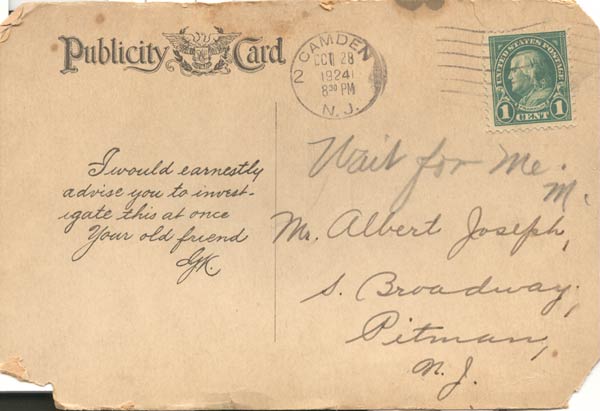 Publicity Card
CAMDEN
OCT 28
1924
8 30 PM
2
N.J.
UNITED STATES POSTAGE
1 1
CENT
I would earnestly
advise you to invest-
igate this at once
Your old friend
GK.
Wait for Me.
M.
Mr. Albert Joseph,
S. Broadway,
Pitman,
N.J.